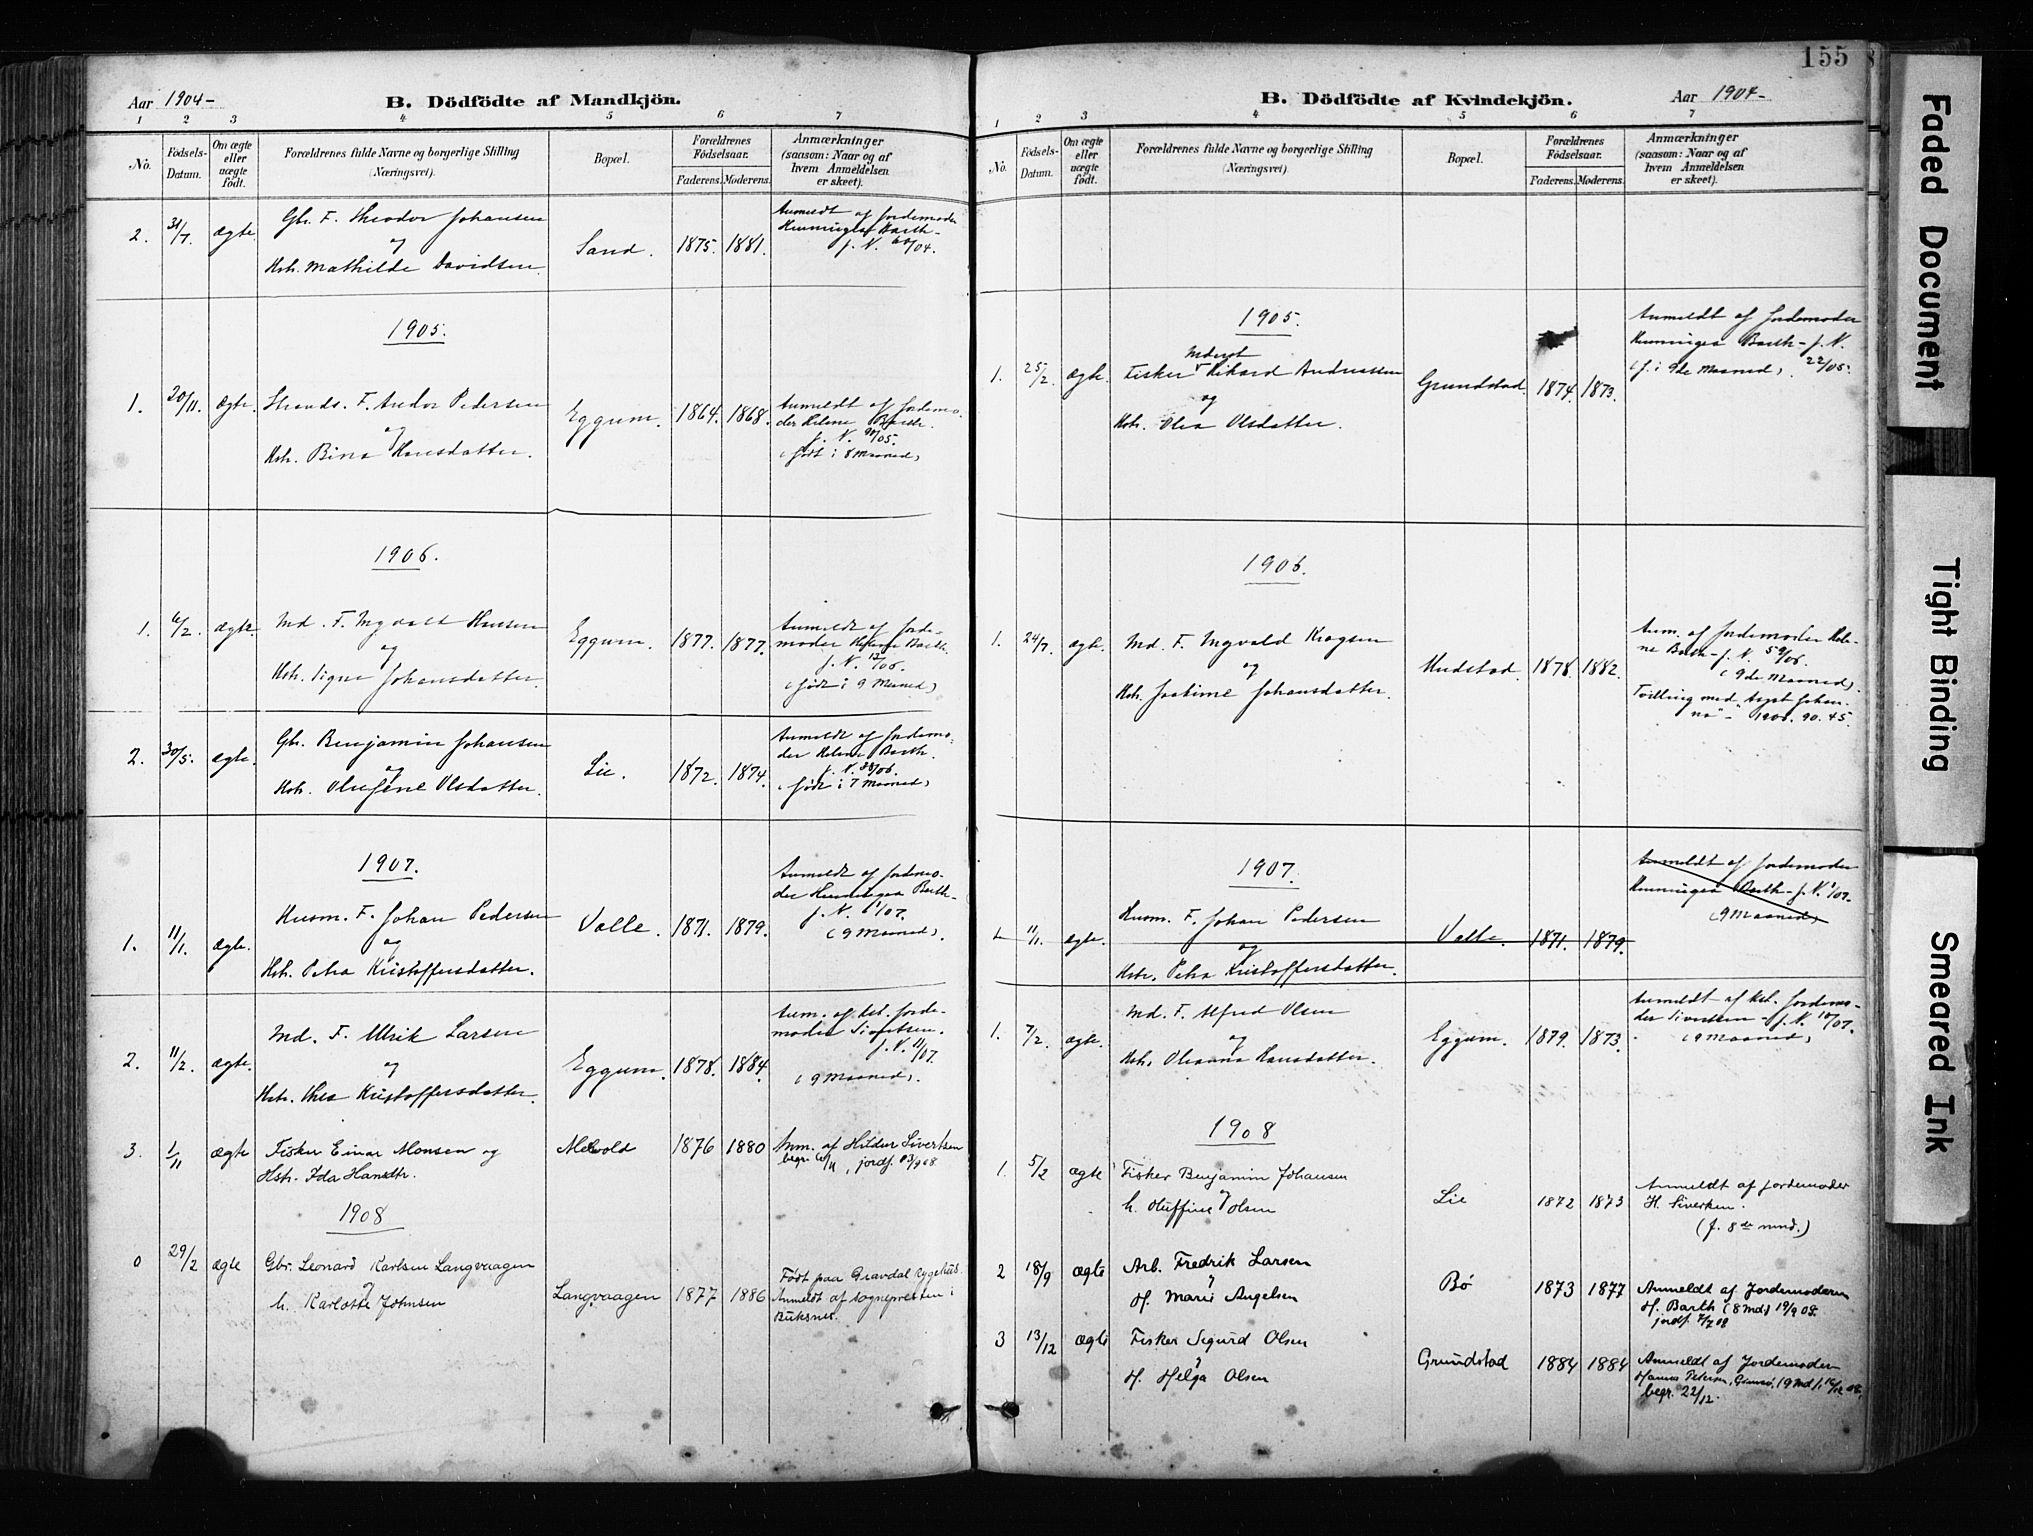 155
Aar 1904-
B. Dödfödte af Mandkjön.
1 2 3 4 5 6 7
No.
Födsels-Datum.
Om ægte eller uægte födt.
Forældrenes fulde Navne og borgerlige Stilling
(Næringsvei).
Bopæl.
Forældrenes Födselsaar.
Faderens. Moderens.
Anmærkninger
(saasom: Naar og af
hvem Anmeldelsen
er skeet).
2. 31/7. ægte. Gbr. F. Theodor Johansen
og
Hstr. Mathilde Davidsen.
Sand. 1875. 1881.
Anmeldt af Jordemoder
Barth-
J. N.
1905.
1. 20/11. ægte. Strands. F. Andor Pedersen
og
Hstr. Bina Hansdatter.
Eggum. 1864. 1868.
Anmeldt af Jordemo-
der Helene Barth.
J. N. 90/05.
(født i 8 Maaned)
1906.
1. 6/2. ægte. Md. F. Ingvald Hansen
og
Hstr. Signe Johansdatter.
Eggum. 1877. 1877.
Anmeldt af Jorde-
moder Helene Barth.
J. N. 12/06.
(født i 9 Maaned)
2. 30/5. ægte. Gbr. Benjamin Johansen
og
Hstr. Olufine Olsdatter.
Lie. 1872. 1874.
Anmeldt af Jordemo-
der Helene Barth.
J. N. 38/06.
(født i 7 Maaned)
1907.
1. 11/1. ægte. Husm. F. Johan Pedersen
og
Hstr. Petra Kristoffersdatter.
Valle. 1871. 1879.
Anmeldt af Jordmo-
der Henningea Barth-
J. N. 6/07.
(9 Maaned).
2. 11/2. ægte. Md. F. Ulrik Larsen
og
Hstr. Thea Kristoffersdatter.
Eggum. 1878. 1884.
Anm. af kst. Jorde-
moder Sivertsen.
J. N. 11/07.
(9 Maaned).
3. 1/11 ægte Fisker Einar Monsen og
Hstr. Ida Hansdtr.
Mevold 1876 1880
Anm. af Hildur Sivertsen
begr. , jordf. 03/9 08.
1908
0 29/2 ægte Gbr. Leonard Karlsen Langvaagen
og
h. Karlotte Johnsen
Langvaagen 1877 1886
Født paa Gravdal sygehus.
Anmeldt af sognepresten i
Buksnes.
B. Dödfödte af Kvindekjön.
Aar 1904-
1 2 3 4 5 6 7
No.
Födsels-Datum.
Om ægte eller uægte födt.
Forældrenes fulde Navne og borgerlige Stilling
(Næringsvei).
Bopæl.
Forældrenes Födselsaar.
Faderens. Moderens.
Anmærkninger
(saasom: Naar og af
hvem Anmeldelsen
er skeet).
1905.
1. 25/2. ægte. Fisker Rikard Andreassen
og
Hstr. Olea Olsdatter.
Grundstad. 1874. 1873.
Anmeldt af Jordemoder
Henningea Barth - J. N.
22/05.
(f. i 9de Maaned).
1906.
1. 24/7. ægte. Md. F. Ingvald Krogsen
og
Hstr. Johansdatter.
Hudstad. 1878. 1882.
Anm. af Jordemoder Hele-
ne Barth - J. N. 59/06.
(9de Maaned).
Tvilling med Johan-
na 1906. 90. 45.
1907.
1. 11/1. ægte. Husm. F. Johan Pedersen
og
Hstr. Petra Kristoffersdatter.
Valle. 1871. 1879.
Anmeldt af Jordemoder
Henningea Barth - J. N. 1/07.
(9 Maaned)
1. 7/2. ægte. Md. F. Alfred Olsen
og
Hstr. Oleanna Hansdatter.
Eggum. 1879. 1873.
Anmeldt af kst. Jordemo-
der Sivertsen - J. N. 10/07.
(9 Maaned)
1908
1. 5/2 ægte Fisker Benjamin Johansen
og
h. Oluffine Olsen
Lie 1872 1873
Anmeldt af Jordemoder
H. Sivertsen.
(f. 8de mnd.)
2 18/9 ægte Arb. Fredrik Larsen
og
H. Marie Angelsen
Bö 1873 1877
Anmeldt af Jordemoderen
H. Barth (8 Md) 19/9 08.
jordf.
3 13/12 ægte Fisker Sigurd Olsen
og
H. Helga Olsen
Grundstad 1884 1884
Anmeldt af Jordemoder
Hanna Petersen, Gimsø, (9 Md),
begr. 22/12.
Faded Document
Tight Binding
Smeared Ink